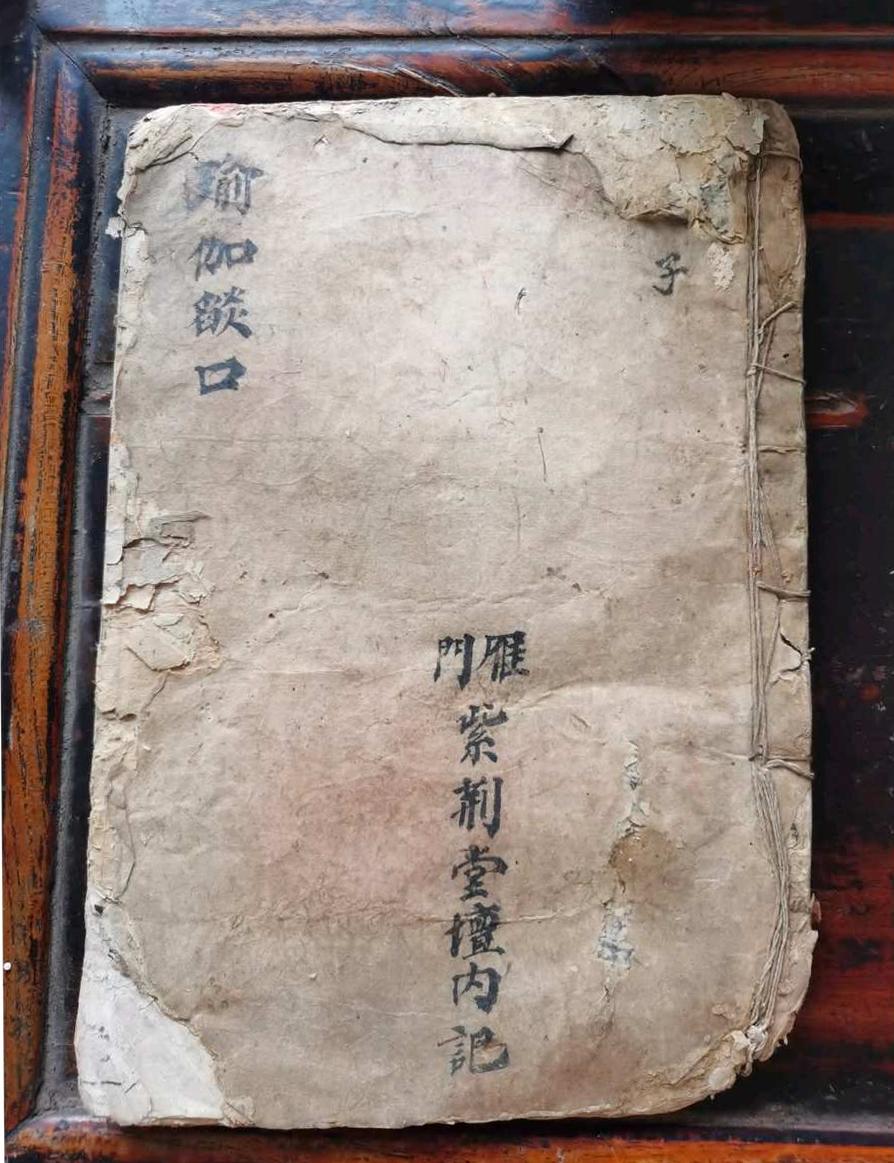 子
雁門
紫荆堂壇内記
瑜伽燄口